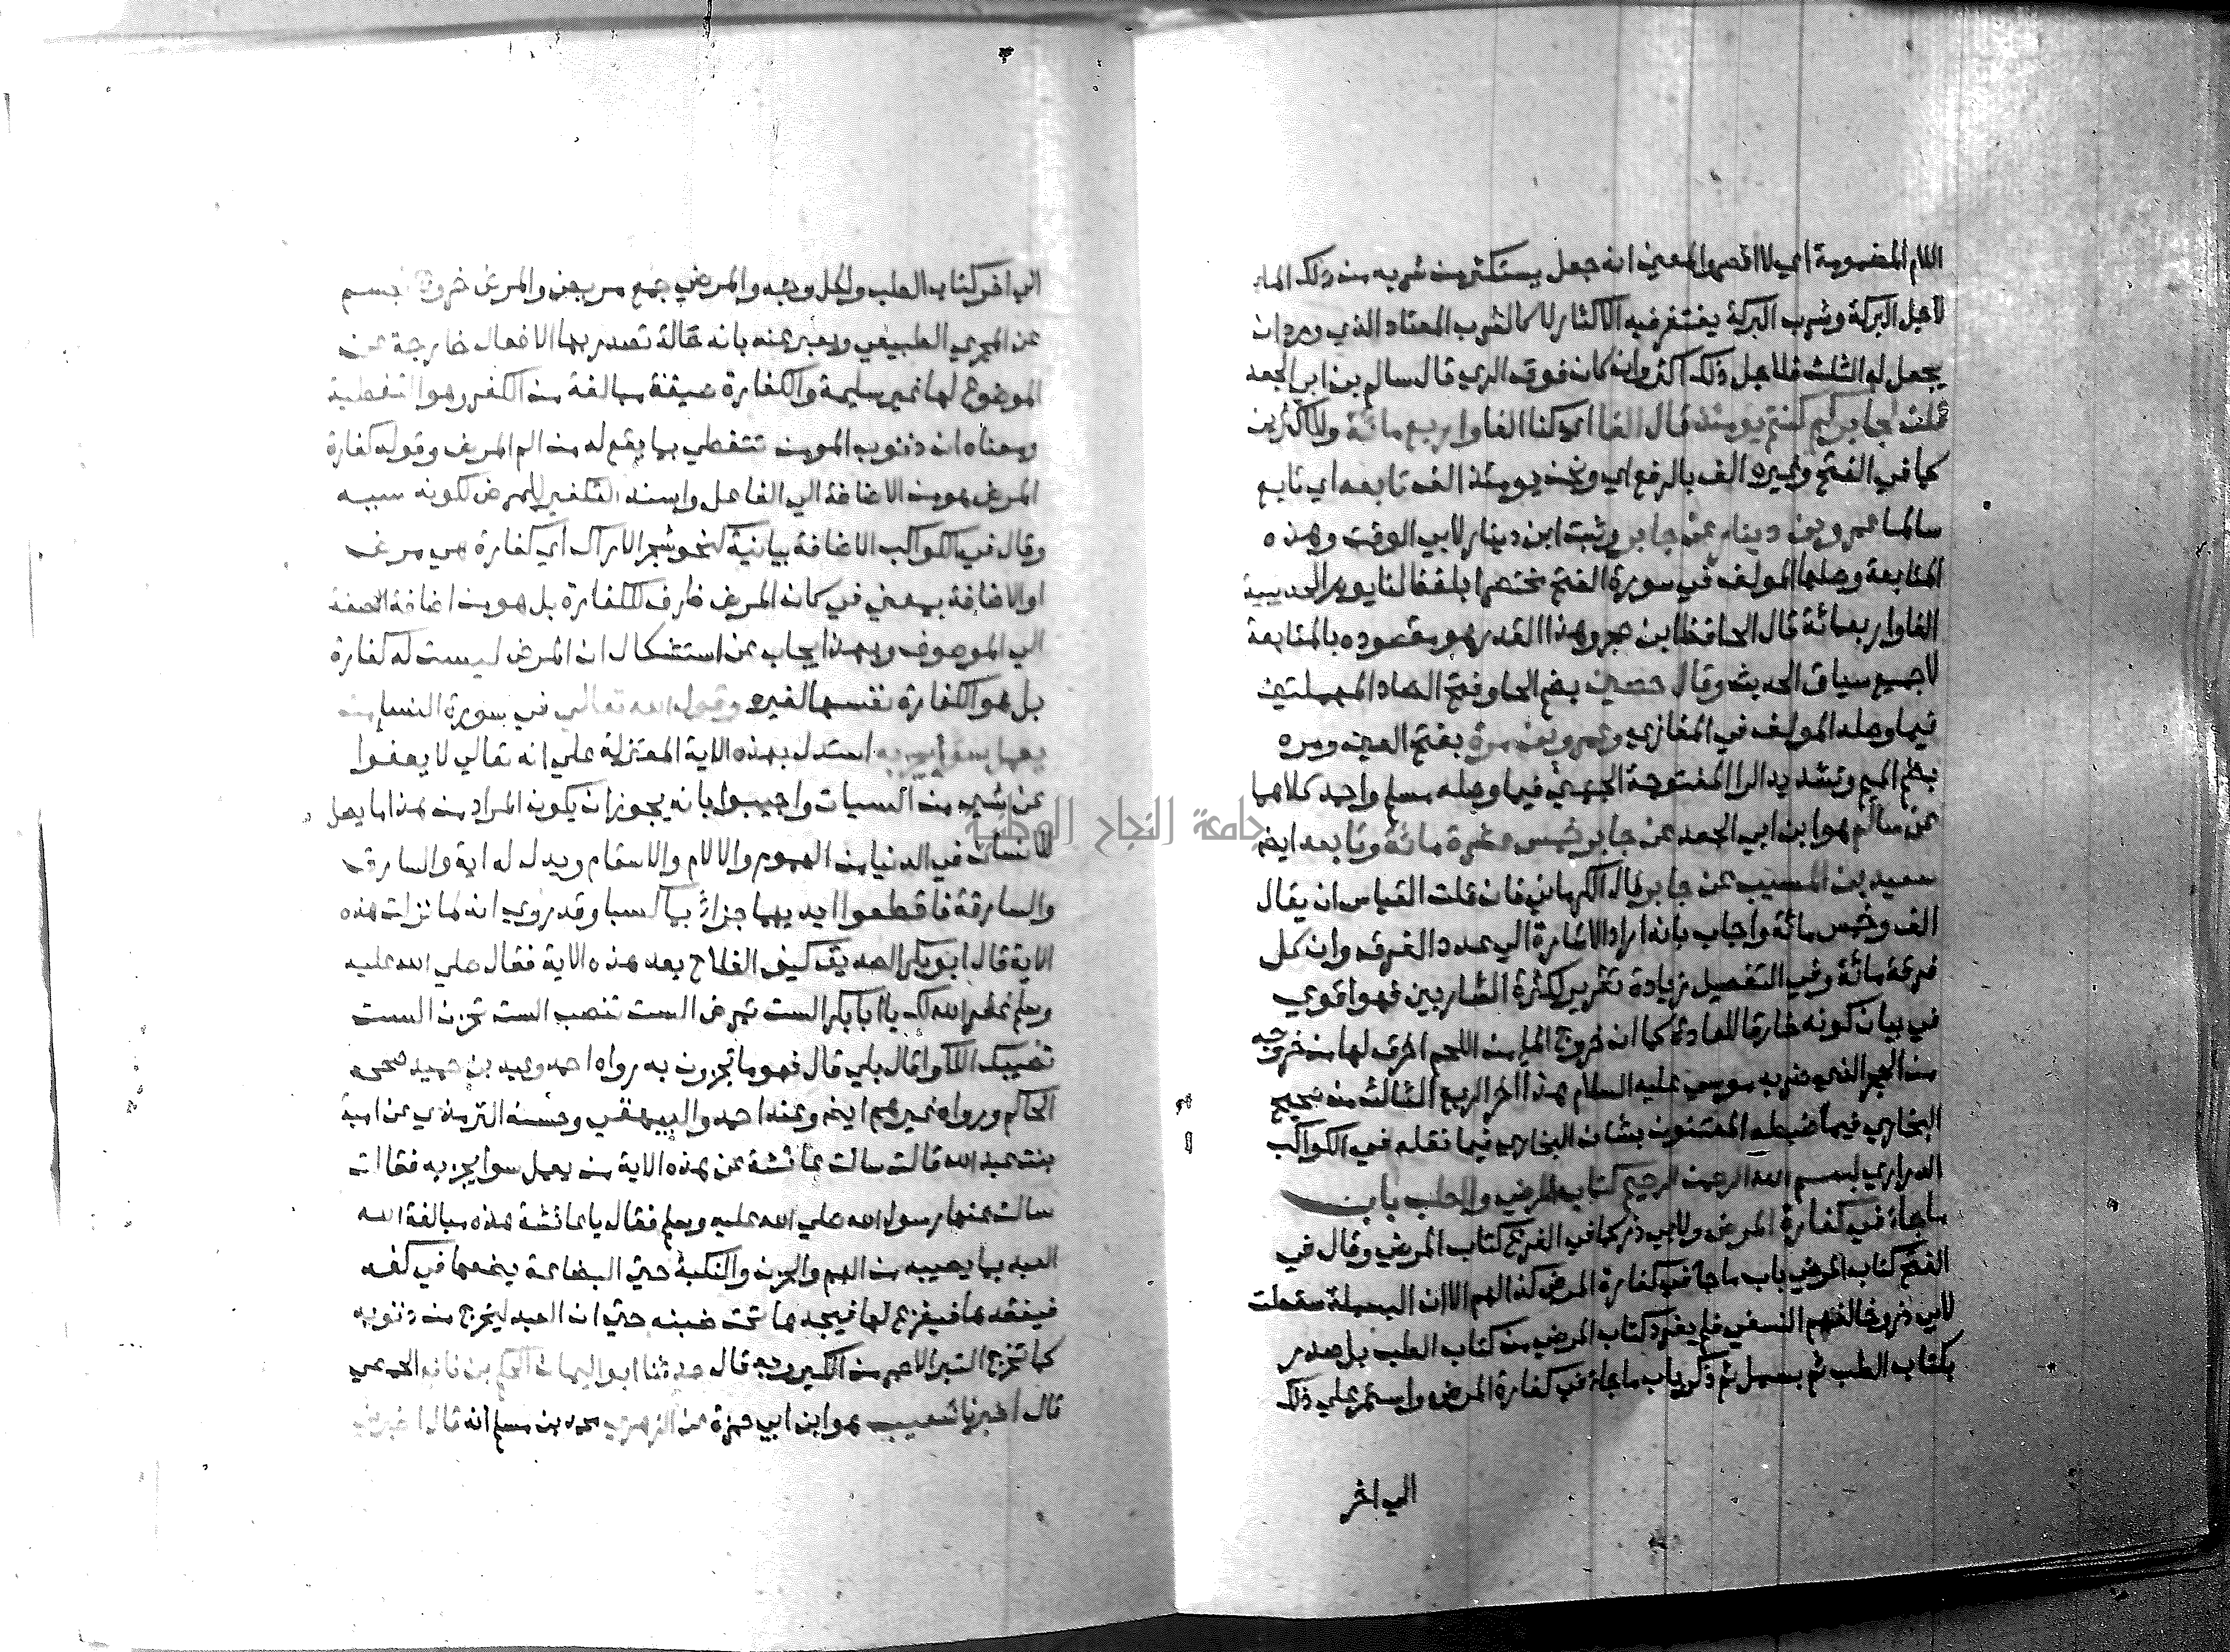 اللام المضمومة اي لا اقصر والمعني انه جعل يستكثر من شربه من ذلك الماء
لاجل البركة وشرب البركة يغتفر فيه الاكثار لا كالشرب المعتاد الذي ورد ان
يجعل له الثلث فلاجل ذلك اكثر وان كان فوق الري قال سالم بن ابي الجعد
قلت لجابر كم كنتم يومئذ قال الفا اي كنا الفا واربع مائة وللاكثرين
كما في الفتح وغيره الف بالرفع اي ونحن يومئذ الف تابعه اي تابع
سالما عمرو بن دينار عن جابر وثبت ابن دينار لابي الوقت وهذه
المتابعة وصلها المولف في سورة الفتح مختصرا بلفظ كنا يوم الحديبية
الفا واربعمائة قال الحافظ ابن حجر وهذا القدر هو مقصوده بالمتابعة
لا جميع سياق الحديث وقال حصين بضم الحا وفتح الصاد المهملتين
فيما وصله المولف في المغازي وعمرو بن مرة بفتح العين ومره
بضم الميم وتشديد الرا المفتوحة الجهني فيما وصله مسلم واحمد كلاهما
عن سالم هو ابن ابي الجعد عن جابر خمس عشرة مائة وتابعه ايضا
سعيد بن المسيب عن جابر قال الكرماني فان قلت القياس ان يقال
الف وخمس مائة واجاب بانه اراد الاشارة الي عدد الفرق وان كل
فرقة مائة وفي التفصيل زيادة تقرير لكثرة الشاربين فهو اقوي
في بيان كونه خارقا للعادة كما ان خروج الما من اللحم اخرق لها من خروجه
من الحجر الذي ضربه موسي عليه السلام هذا اخر الربع الثالث من صحيح
البخاري فيما ضبطه المعتنون بشان البخاري فيما نقله في الكواكب
الدراري بسم الله الرحمن الرحيم كتاب المرضي والطب باب
ماجاء في كفارة المرض ولابي ذر كما في الفرع كتاب المرضي وقال في
الفتح كتاب المرضي باب ماجا في كفارة المرض كذا لهم الا ان البسملة سقطت
لابي ذر وخالفهم النسفي فلم يفرد كتاب المرضي من كتاب الطب بل صدر
بكتاب الطب ثم بسمل ثم ذكر باب ماجاء في كفارة المرض واستمر علي ذلك
الي اخر
الي اخر كتاب الطب ولكل وجه والمرضي جمع مريض والمرض خروج الجسم
عن المجري الطبيعي ويعبر عنه بانه حالة تصدر بها الافعال خارجة عن
الموضوع لها غير سليمة والكفارة صيغة مبالغة من الكفر وهو التغطية
ومعناه ان ذنوب المومن تتغطي بما يقع له من الم المرض وقوله كفارة
المرض هو من الاضافة الي الفاعل واسند التكفير للمرض لكونه سببه
وقال في الكواكب الاضافة بيانية كنحو شجر الاراك اي كفارة هي مرض
او الاضافة بمعني في كان المرض ظرف للكفارة بل هو من اضافة الصفة
الي الموصوف وبهذا يجاب عن استشكال ان المرض ليست له كفارة
بل هو الكفارة نفسها لغيره وقول الله تعالي في سورة النسا من
يعمل سوأ يجز به استدل بهذه الاية المعتزلة علي انه تعالي لا يعفوا
عن شي من السيات واجيبوا بانه يجوز ان يكون المراد من هذا ما يصل
للانسان في الدنيا من الهموم والالام والاسقام ويدل له اية والسارق
والسارقة فاقطعوا ايديهما جزاءً بما كسبا وقد روي انه لما نزلت هذه
الاية قال ابو بكر الصديق كيف الفلاح بعد هذه الاية فقال صلي الله عليه
وسلم غفر الله لك يا ابا بكر الست تمرض الست تنصب الست تحزن الست
تصيبك اللأوا قال بلي قال فهو ما تجزون به رواه احمد وعبد بن حميد وصححه
الحاكم ورواه غيرهم ايضا وعند احمد والبيهقي وحسنه الترمذي عن امية
بنت عبد الله قالت سالت عائشة عن هذه الاية من يعمل سوا يجز به فقالت
سالت عنها رسول الله صلي الله عليه وسلم فقال يا عائشة هذه مبالغة الله
العبد بما يصيبه من الهم والحزن والنكبة حتي البضاعة يضعها في كفه
فيفقدها فيفزع لها فيجدها تحت ضبنه حتي ان العبد ليخرج من ذنوبه
كما تخرج التبر الاحمر من الكير وبه قال حدثنا ابو اليمان الحكم بن نافع الحمصي
قال اخبرنا شعيب هو ابن ابي حمزة عن الزهري محمد بن مسلم انه قال اخبرني
جامعة النجاح الوطنية